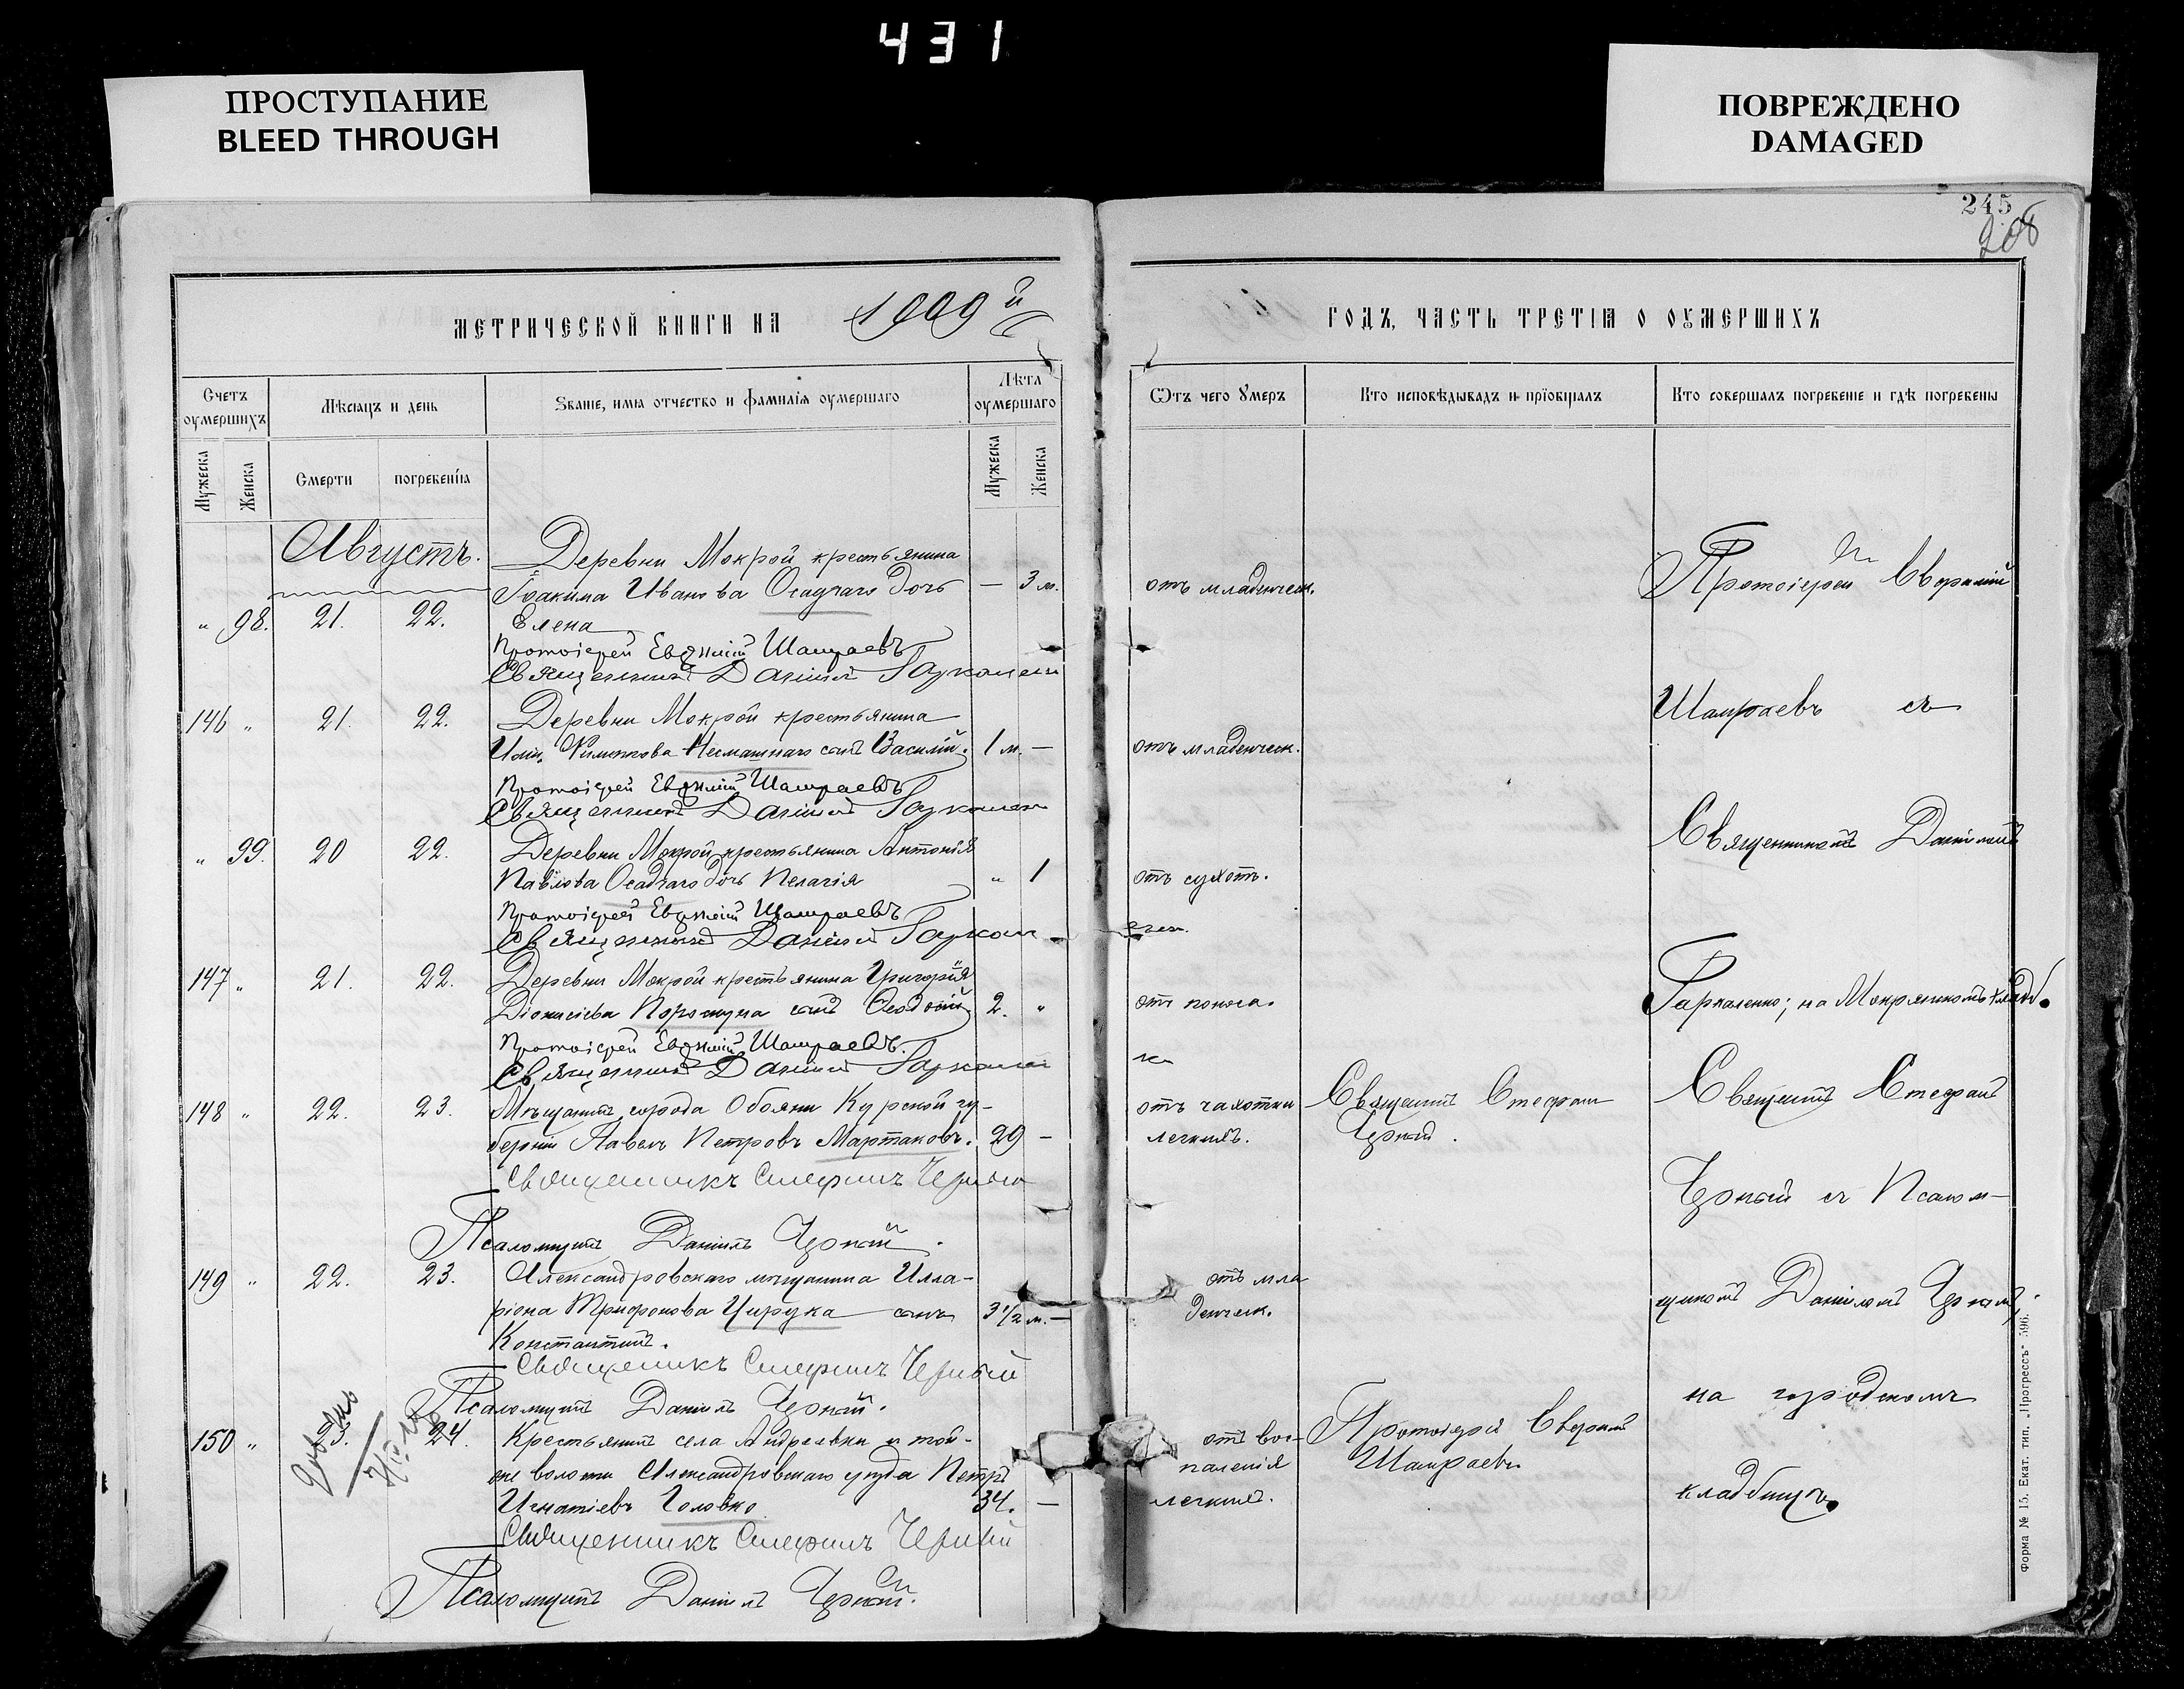 431
ПРОСТУПАНИЕ
BLEED THROUGH
ПОВРЕЖДЕНО
DAMAGED
245
208
МЕТРИЧЕСКОЙ КНИГИ НА 1909й
ГОДЪ, ЧАСТЬ ТРЕТІЯ О ОУМЕРШИХЪ
Счетъ оумершихъ
Мѣсяцъ и день
Званіе, имя отчество и фамилія оумершаго
Лѣта оумершаго
Ѿтъ чего Умеръ
Кто исповѣдывалъ и прїобщалъ
Кто совершалъ погребеніе и гдѣ погребены
Мужеска
Женска
Смерти
погребенїѧ
Мужеска
Женска
Августъ.
Деревни Мокрой крестьянина
Іоакима Иванова Осадчаго дочь — 3 м. отъ младенческ.
" 98. 21. 22. Елена
Протоіерей Евѳимій Шамраевъ
Священникъ Даніилъ
146 " 21. 22. Деревни Мокрой крестьянина
сынъ Василій. 1 м. — отъ младенческ.
Протоіерей Евѳимій Шамраевъ
Священникъ Даніилъ
" 99. 20 22. Деревни Мокрой крестьянина Антонія
Павлова Осадчаго дочь Пелагія " 1 отъ сухот.
Протоіерей Евѳимій Шамраевъ
Священникъ Даніилъ
147 " 21. 22. Деревни Мокрой крестьянина Григорія
Діонисіева сынъ Ѳеодосій 2. " отъ поноса.
Протоіерей Евѳимій Шамраевъ.
Священникъ Даніилъ
148 " 22. 23. Мѣщанинъ города Обояни Курской гу-
берніи Павелъ Петровъ Мартаковъ. 29 — отъ чахотки легкихъ.
Священникъ Стефанъ Черный
Псаломщикъ Даніилъ Черный.
149 " 22. 23. Александровскаго мѣщанина Илла-
ріона Трифонова Цирука сынъ 3 1/2 м. — отъ мла
Константинъ. денческ.
Священникъ Стефанъ Черный
Псаломщикъ Даніилъ Черный.
150 " 23. 24. Крестьянинъ села Андреевки и той-
же волости Александровскаго уѣзда Петръ
Игнатіевъ Головко 34. — отъ вос-
паленія
легкихъ.
Священникъ Стефанъ Черный
Псаломщикъ Даніилъ Черный.
Священникъ Стефанъ
Черный.
Протоіерей Евѳимій
Шамраевъ
Протоіерей Евѳимій
Шамраевъ съ
Священникомъ Даніиломъ
на Мокрянскомъ кладб.
Священникъ Стефанъ
Черный съ Псалом-
щикомъ Даніиломъ Чернымъ,
на городскомъ
кладбищѣ.
Форма № 15. Екат. тип. „Прогрессъ" 596.